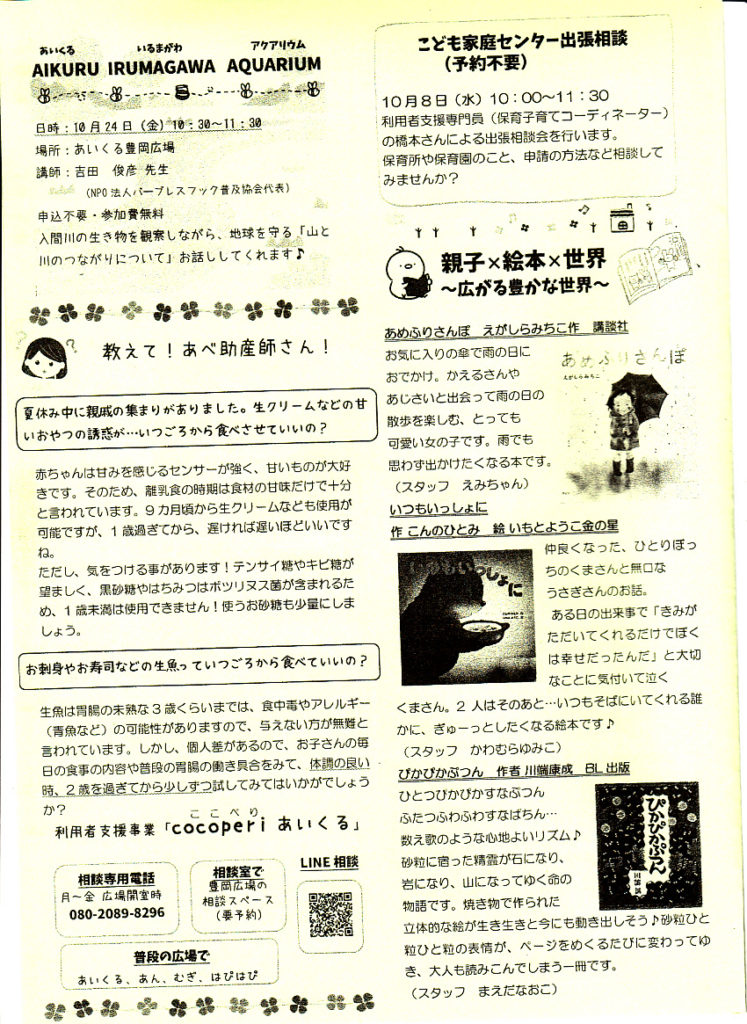 あいくる いるまがわ アクアリウム
AIKURU IRUMAGAWA AQUARIUM
日時：10月24日（金）10：30～11：30
場所：あいくる豊岡広場
講師：吉田 俊彦 先生
（NPO法人バーブレスフック普及協会代表）
申込不要・参加費無料
入間川の生き物を観察しながら、地球を守る「山と
川のつながりについて」お話ししてくれます♪
教えて！あべ助産師さん！
夏休み中に親戚の集まりがありました。生クリームなどの甘
いおやつの誘惑が…いつごろから食べさせていいの？
赤ちゃんは甘みを感じるセンサーが強く、甘いものが大好
きです。そのため、離乳食の時期は食材の甘味だけで十分
と言われています。9カ月頃から生クリームなども使用が
可能ですが、1歳過ぎてから、遅ければ遅いほどいいです
ね。
ただし、気をつける事があります！テンサイ糖やキビ糖が
望ましく、黒砂糖やはちみつはボツリヌス菌が含まれるた
め、1歳未満は使用できません！使うお砂糖も少量にしま
しょう。
お刺身やお寿司などの生魚っていつごろから食べていいの？
生魚は胃腸の未熟な3歳くらいまでは、食中毒やアレルギー
（青魚など）の可能性がありますので、与えない方が無難と
言われています。しかし、個人差があるので、お子さんの毎
日の食事の内容や普段の胃腸の働き具合をみて、体調の良い
時、2歳を過ぎてから少しずつ試してみてはいかがでしょう
か？
ここぺり
利用者支援事業「cocoperi あいくる」
相談専用電話
月～金 広場開室時
080-2089-8296
相談室で
豊岡広場の
相談スペース
（要予約）
LINE相談
普段の広場で
あいくる、あん、むぎ、はぴはぴ
こども家庭センター出張相談
（予約不要）
10月8日（水）10：00～11：30
利用者支援専門員（保育子育てコーディネーター）
の橋本さんによる出張相談会を行います。
保育所や保育園のこと、申請の方法など相談して
みませんか？
親子×絵本×世界
～広がる豊かな世界～
あめふりさんぽ えがしらみちこ作 講談社
お気に入りの傘で雨の日に
おでかけ。かえるさんや
あじさいと出会って雨の日の
散歩を楽しむ、とっても
可愛い女の子です。雨でも
思わず出かけたくなる本です。
（スタッフ えみちゃん）
あめふりさんぽ
えがしらみちこ
いつもいっしょに
作 こんのひとみ 絵 いもとようこ金の星
いつもいっしょに
仲良くなった、ひとりぼっ
ちのくまさんと無口な
うさぎさんのお話。
ある日の出来事で「きみが
ただいてくれるだけでぼく
は幸せだったんだ」と大切
なことに気付いて泣く
くまさん。2人はそのあと…いつもそばにいてくれる誰
かに、ぎゅーっとしたくなる絵本です♪
（スタッフ かわむらゆみこ）
ぴかぴかぷつん 作者 川端康成 BL出版
ひとつぴかぴかすなぷつん
ふたつふわふわすなぱちん…
数え歌のような心地よいリズム♪
砂粒に宿った精霊が石になり、
岩になり、山になってゆく命の
物語です。焼き物で作られた
立体的な絵が生き生きと今にも動き出しそう♪砂粒ひと
粒ひと粒の表情が、ページをめくるたびに変わってゆ
き、大人も読みこんでしまう一冊です。
（スタッフ まえだなおこ）
ぴかぴかぷつん